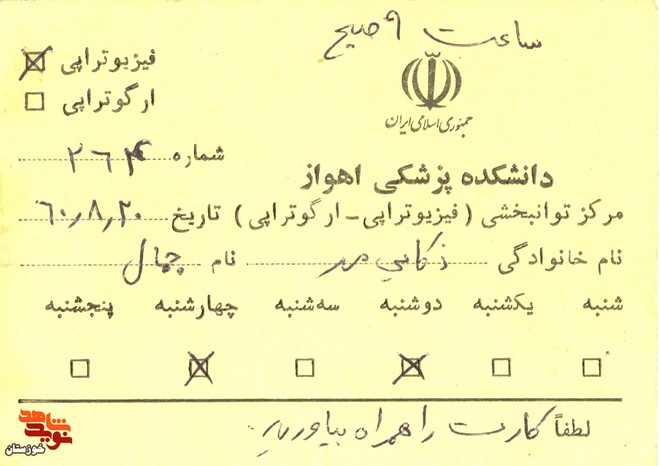 ساعت ۹ صبح
فیزیوتراپی
ارگوتراپی
جمهوری اسلامی ایران
شماره ۲۶۴
دانشکده پزشکی اهواز
مرکز توانبخشی (فیزیوتراپی-ارگوتراپی) تاریخ ۶۰٫۸٫۲۰
نام خانوادگی نام جمال
شنبه یکشنبه دوشنبه سه‌شنبه چهارشنبه پنجشنبه
لطفاً کارت را همراه بیاورید
نوید شاهد
خوزستان